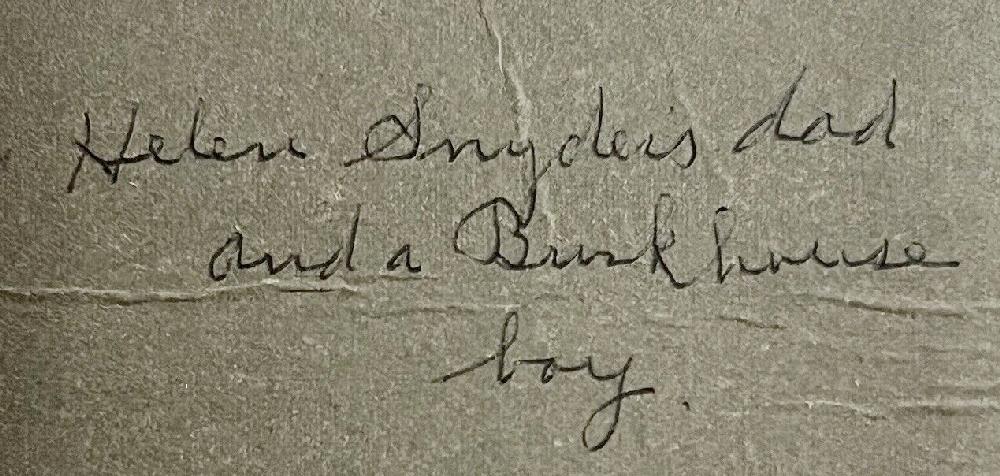 Helen Snyders dad
and a Burkhouse
boy.